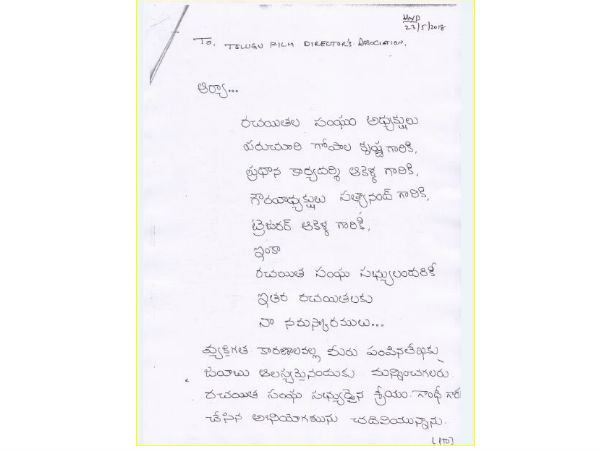 HYD
23/5/2018
To, TELUGU FILM DIRECTOR'S ASSOCIATION,
ఆర్యా...
రచయితల సంఘం అధ్యక్షులు
పరుచూరి గోపాల కృష్ణ గారికి,
ప్రధాన కార్యదర్శి ఆకెళ్ళ గారికి,
గౌరవాధ్యక్షులు సత్యానంద్ గారికి,
ట్రెజరర్ ఆకెళ్ళ గారికి,
ఇంకా
రచయిత సంఘ సభ్యులందరికీ
ఇతర రచయితలకు
నా నమస్కారములు...
వ్యక్తిగత కారణాలవల్ల మీరు పంపిన లేఖకు
జవాబు ఆలస్యమైనందుకు మన్నించగలరు.
రచయిత సంఘ సభ్యుడైన శ్రీయం. గాంధీ గారు
చేసిన అభియోగమును చదివియున్నాను.
(PTO)